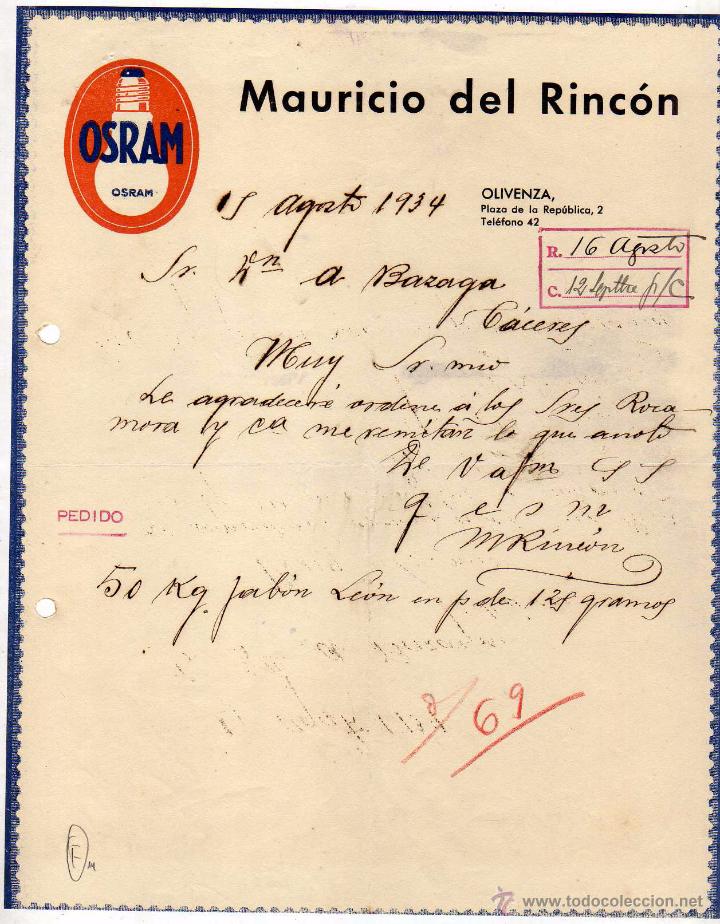 Mauricio del Rincón
OSRAM
OSRAM
OLIVENZA,
Plaza de la República, 2
Teléfono 42
15 Agosto 1934
R. 16 Agosto
C. 12 Septbre p/C
Sr. Dn A Bazaga
Cáceres
Muy Sr. mio
Le agradeceré ordene á los Sres Roca-
mora y Ca me remitan lo que anoto
De V afmo S S
q e s m
MRincón
PEDIDO
50 Kg. Jabón León en p de 125 gramos
69
todocoleccion
www.todocoleccion.net